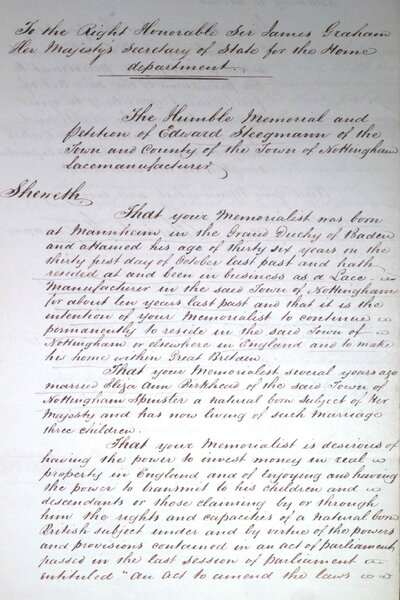 To the Right Honorable Sir James Graham
Her Majesty's Secretary of State for the Home
department.
The Humble Memorial and
Petition of Edward Steegmann of the
Town and County of the Town of Nottingham
Lacemanufacturer
Sheweth
That your Memorialist was born
at Mannheim in the Grand Duchy of Baden
and attained his age of thirty six years on the
thirty first day of October last past and hath
resided at and been in business as a Lace
Manufacturer in the said Town of Nottingham
for about ten years last past and that it is the
intention of your Memorialist to continue
permanently to reside in the said Town of
Nottingham or elsewhere in England and to make
his home within Great Britain.
That your Memorialist several years ago
married Eliza Ann Birkhead of the said Town of
Nottingham Spinster a natural born subject of Her
Majesty and has now living of such marriage
three children.
That your Memorialist is desirous of
having the power to invest money in real
property in England and of enjoying and having
the power to transmit to his children and
descendants or those claiming by or through
him the rights and capacities of a natural born
British subject under and by virtue of the powers
and provisions contained in an act of Parliament
passed in the last session of Parliament
intituled "An act to amend the laws